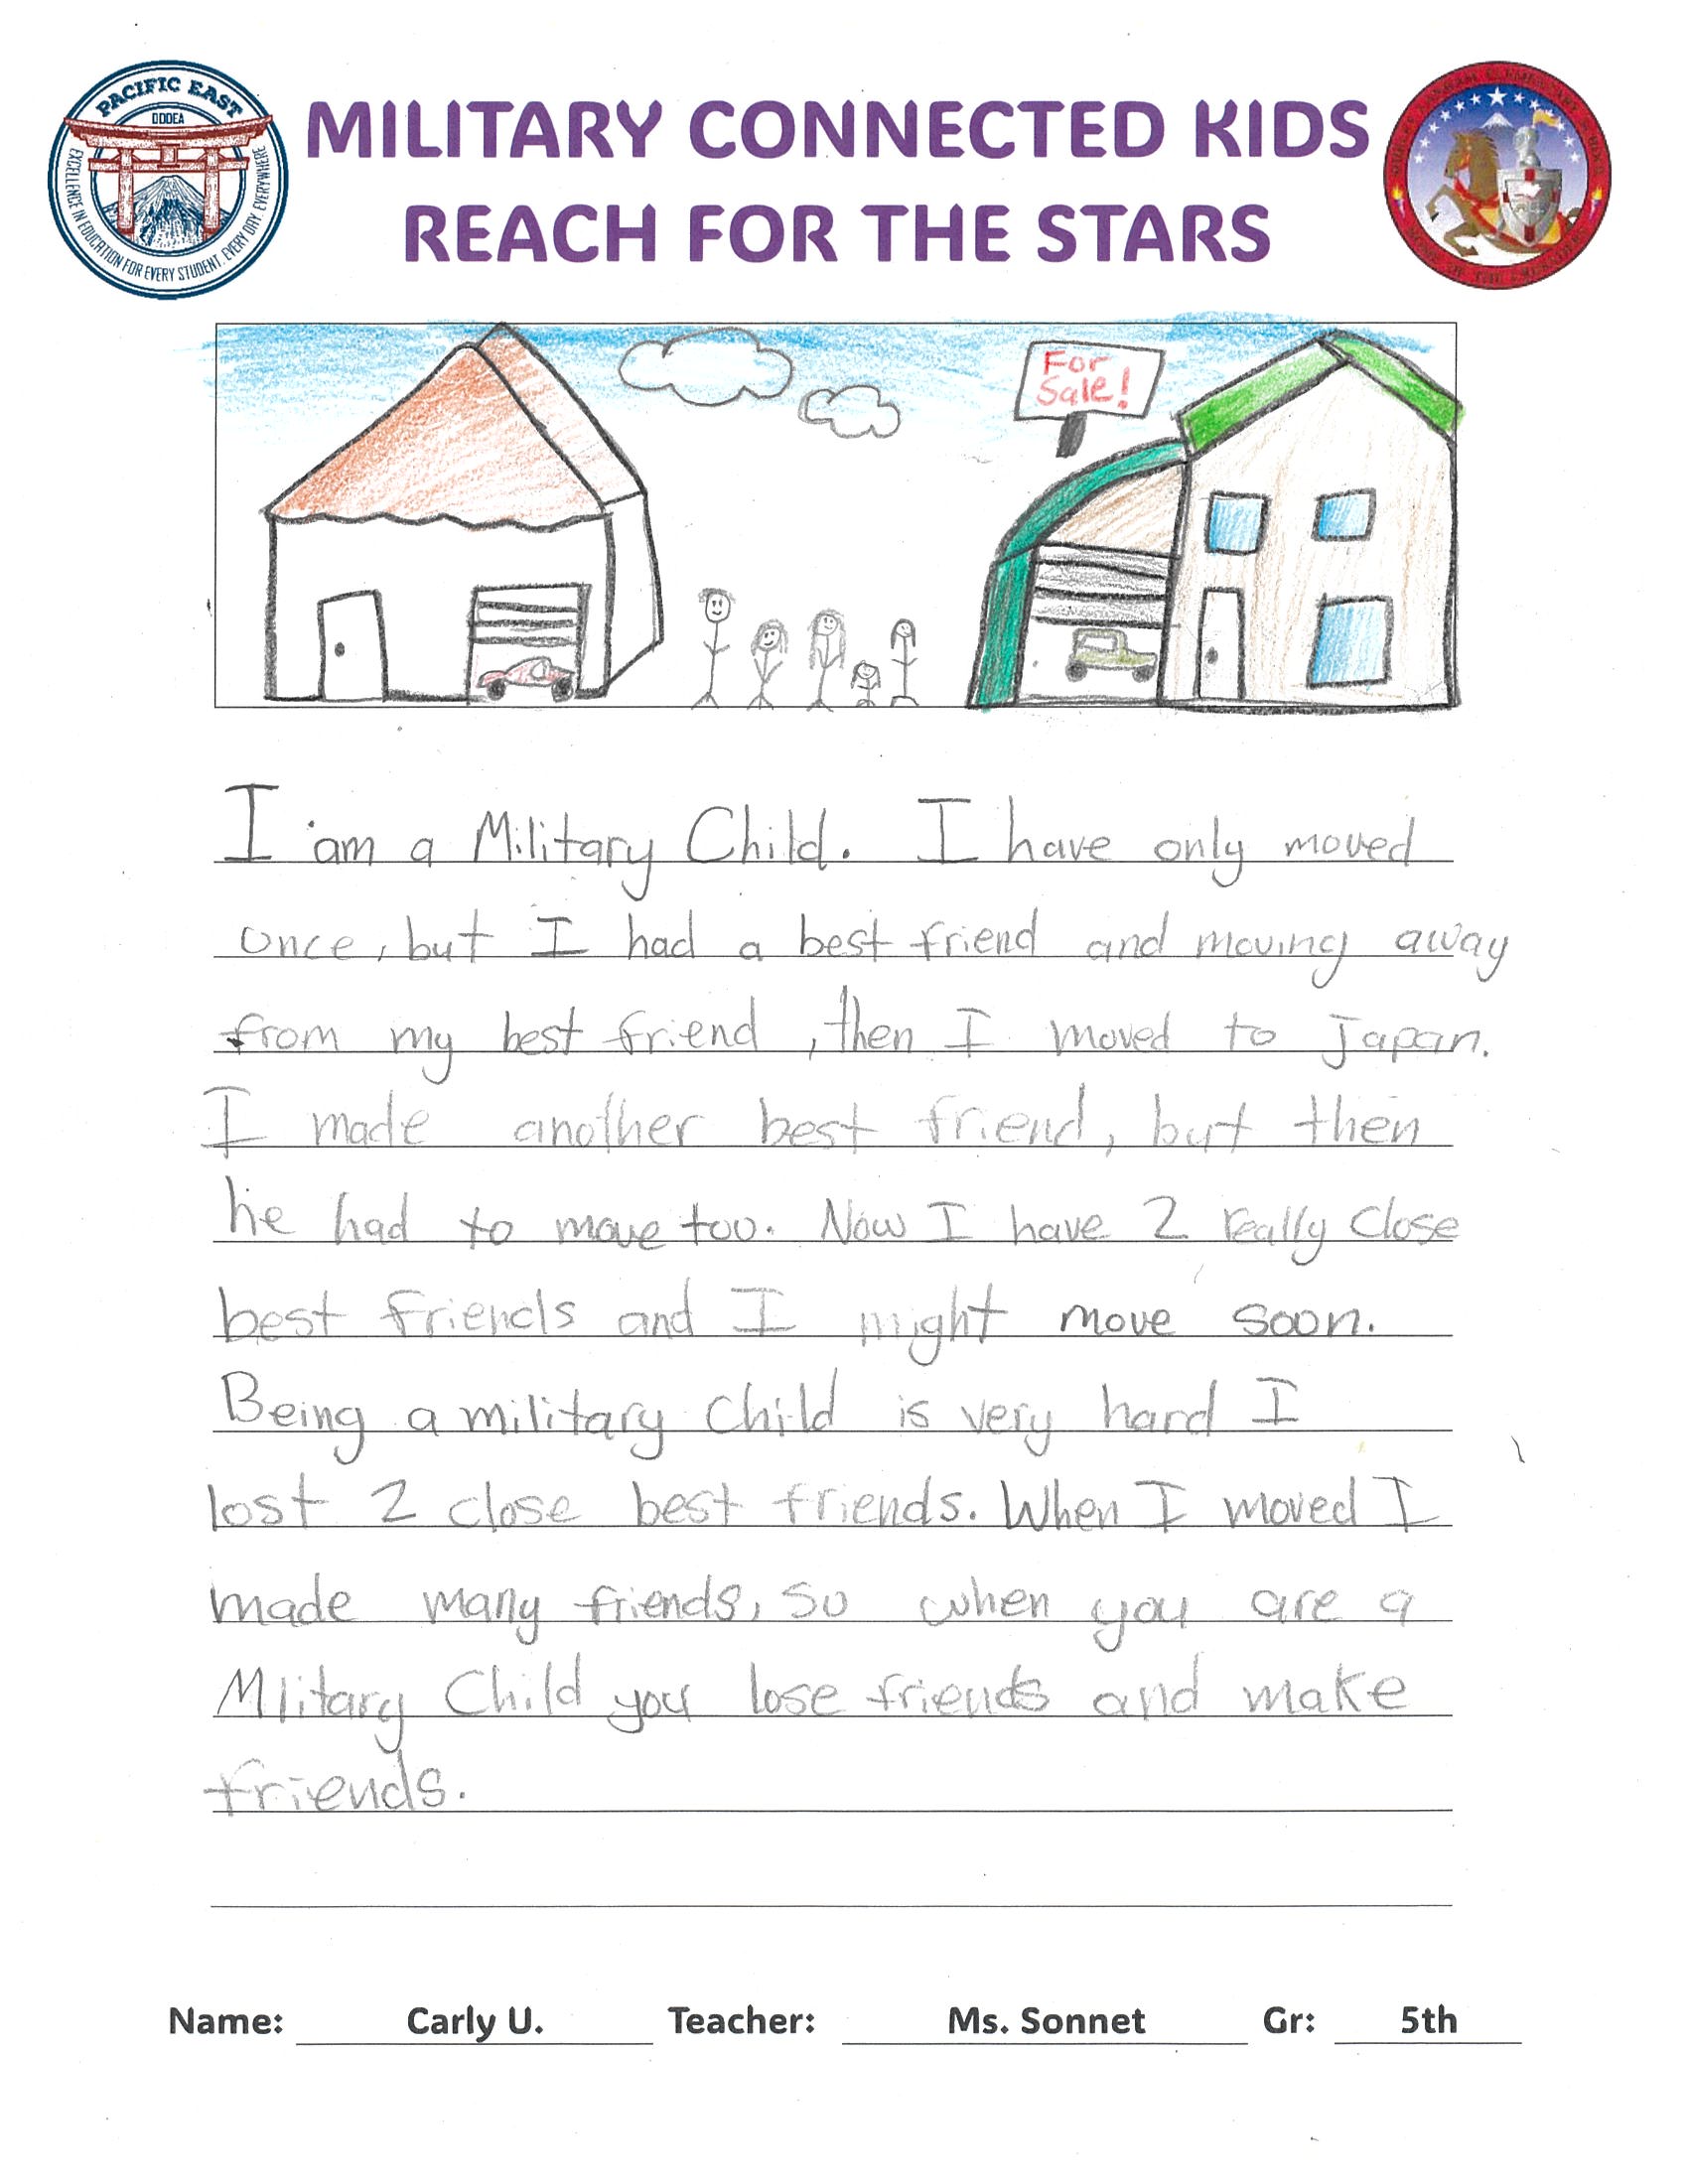 PACIFIC EAST
DODEA
EXCELLENCE IN EDUCATION FOR EVERY STUDENT, EVERY DAY, EVERYWHERE
MILITARY CONNECTED KIDS
REACH FOR THE STARS
For
Sale!
I am a Military Child. I have only moved
once, but I had a best friend and moving away
from my best friend, then I moved to Japan.
I made another best friend, but then
he had to move too. Now I have 2 really close
best friends and I might move soon.
Being a military child is very hard I
lost 2 close best friends. When I moved I
made many friends, so when you are a
Mlitary Child you lose friends and make
friends.
Name: Carly U. Teacher: Ms. Sonnet Gr: 5th